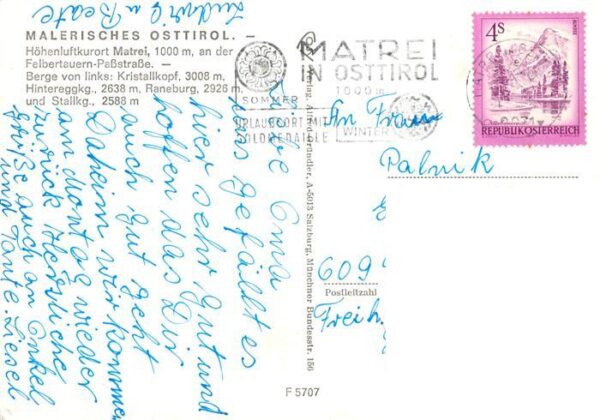 MALERISCHES OSTTIROL. –
Höhenluftkurort Matrei, 1000 m, an der
Felbertauern-Paßstraße. –
Berge von links: Kristallkopf, 3008 m.
Hintereggkg., 2638 m. Raneburg, 2926 m.
und Stallkg., 2588 m
MATREI
IN OSTTIROL
1000 m
SOMMER
URLAUBSORT MIT
GOLDMEDAILLE
WINTER
4S
REPUBLIK ÖSTERREICH
Liebe Oma
uns gefällt es
hier sehr gut und
hoffen das Dir
auch gut geht
Daheim wir kommen
am Montag wieder
zurück Herzliche
Grüße auch an Onkel
und Tante Liesel
Ludwig u Beate
An Frau
Palnik
609
Postleitzahl
Freih
A-5013 Salzburg, Münchner Bundesstr. 156
F 5707